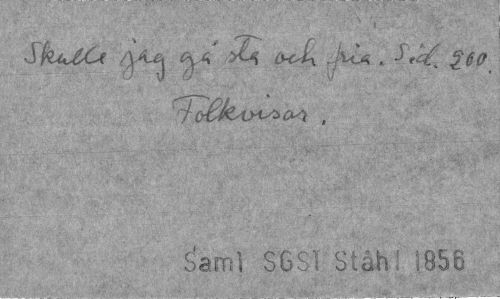 Skulle jag gå sta och fria. Sid. 260.
Folkvisor.
Saml SGS1 Ståhl 1856